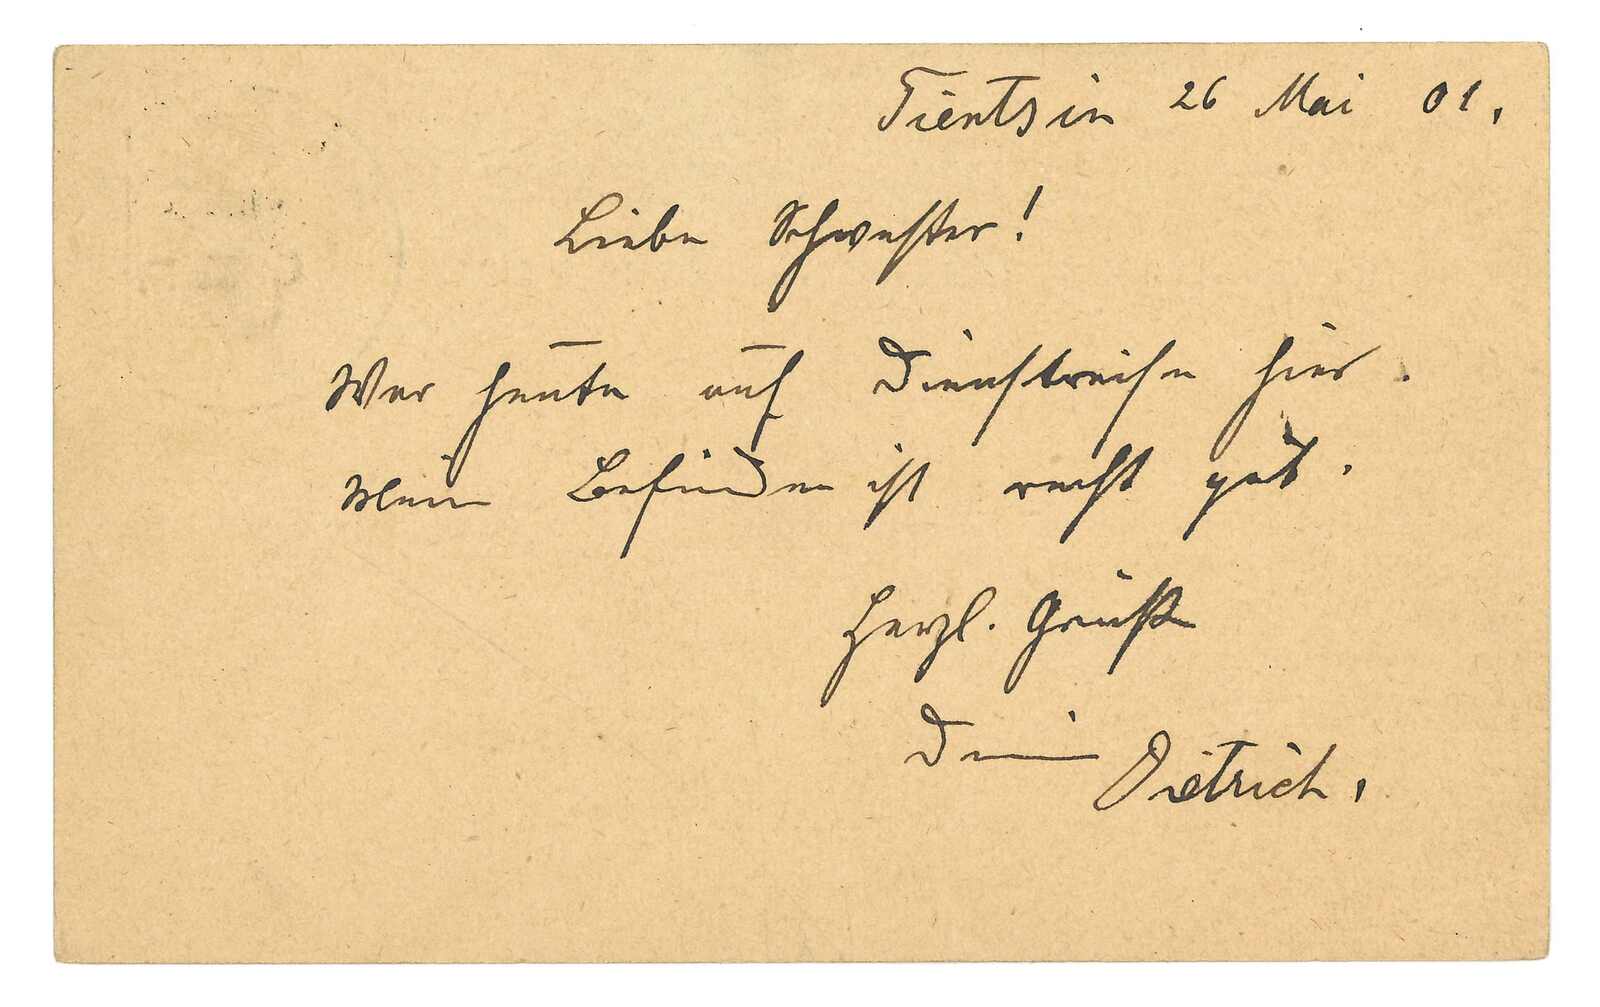 Tientsin 26 Mai 01.
Liebe Schwester!
War heute auf Dienstreise hier.
Mein Befinden ist recht gut.
Herzl. Grüße
Dein Dietrich.